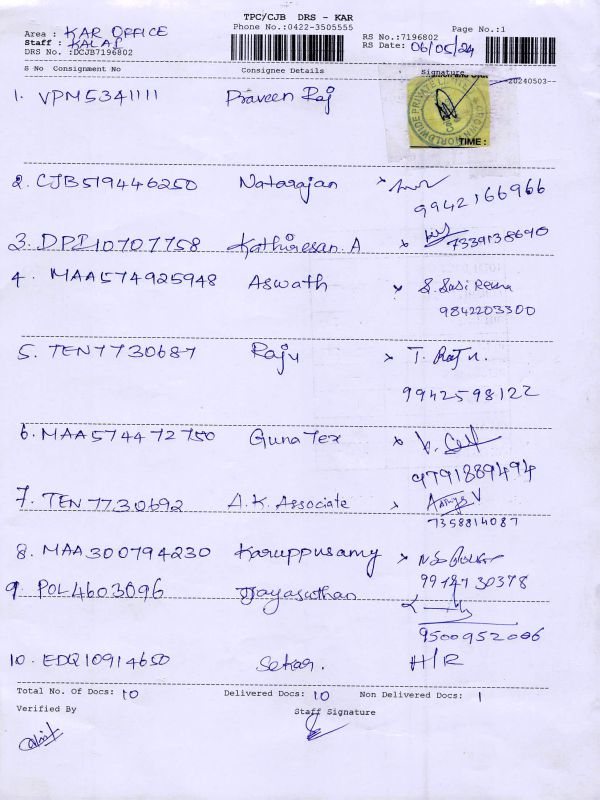 TPC/CJB DRS - KAR
Phone No.:0422-3505555
Page No.:1
Area : KAR OFFICE
Staff : KALAI
DRS No. :DCJB7196802
RS No.:7196802
RS Date: 06/05/24
S No Consignment No Consignee Details Signature
--20240503--
1. VPM5341111 Praveen Raj
TIME :
2. CJB519446250 Natarajan
9942166966
3. DPI10707758 Kathiresan. A
7339138690
4. MAA574925948 Aswath S. Sasi Rekha
9842203300
5. TEN7730687 Raju T. Raju.
9942598122
6. MAA574472750 Guna Tex
9791889494
7. TEN7730692 A.K. Associate
7358814087
8. MAA300794230 Karuppusamy
9944730378
9 POL4603096 Jayasuthan
9500952006
10. EDQ10914650 Sekar. H/R
Total No. Of Docs: 10 Delivered Docs: 10 Non Delivered Docs: 1
Verified By Staff Signature